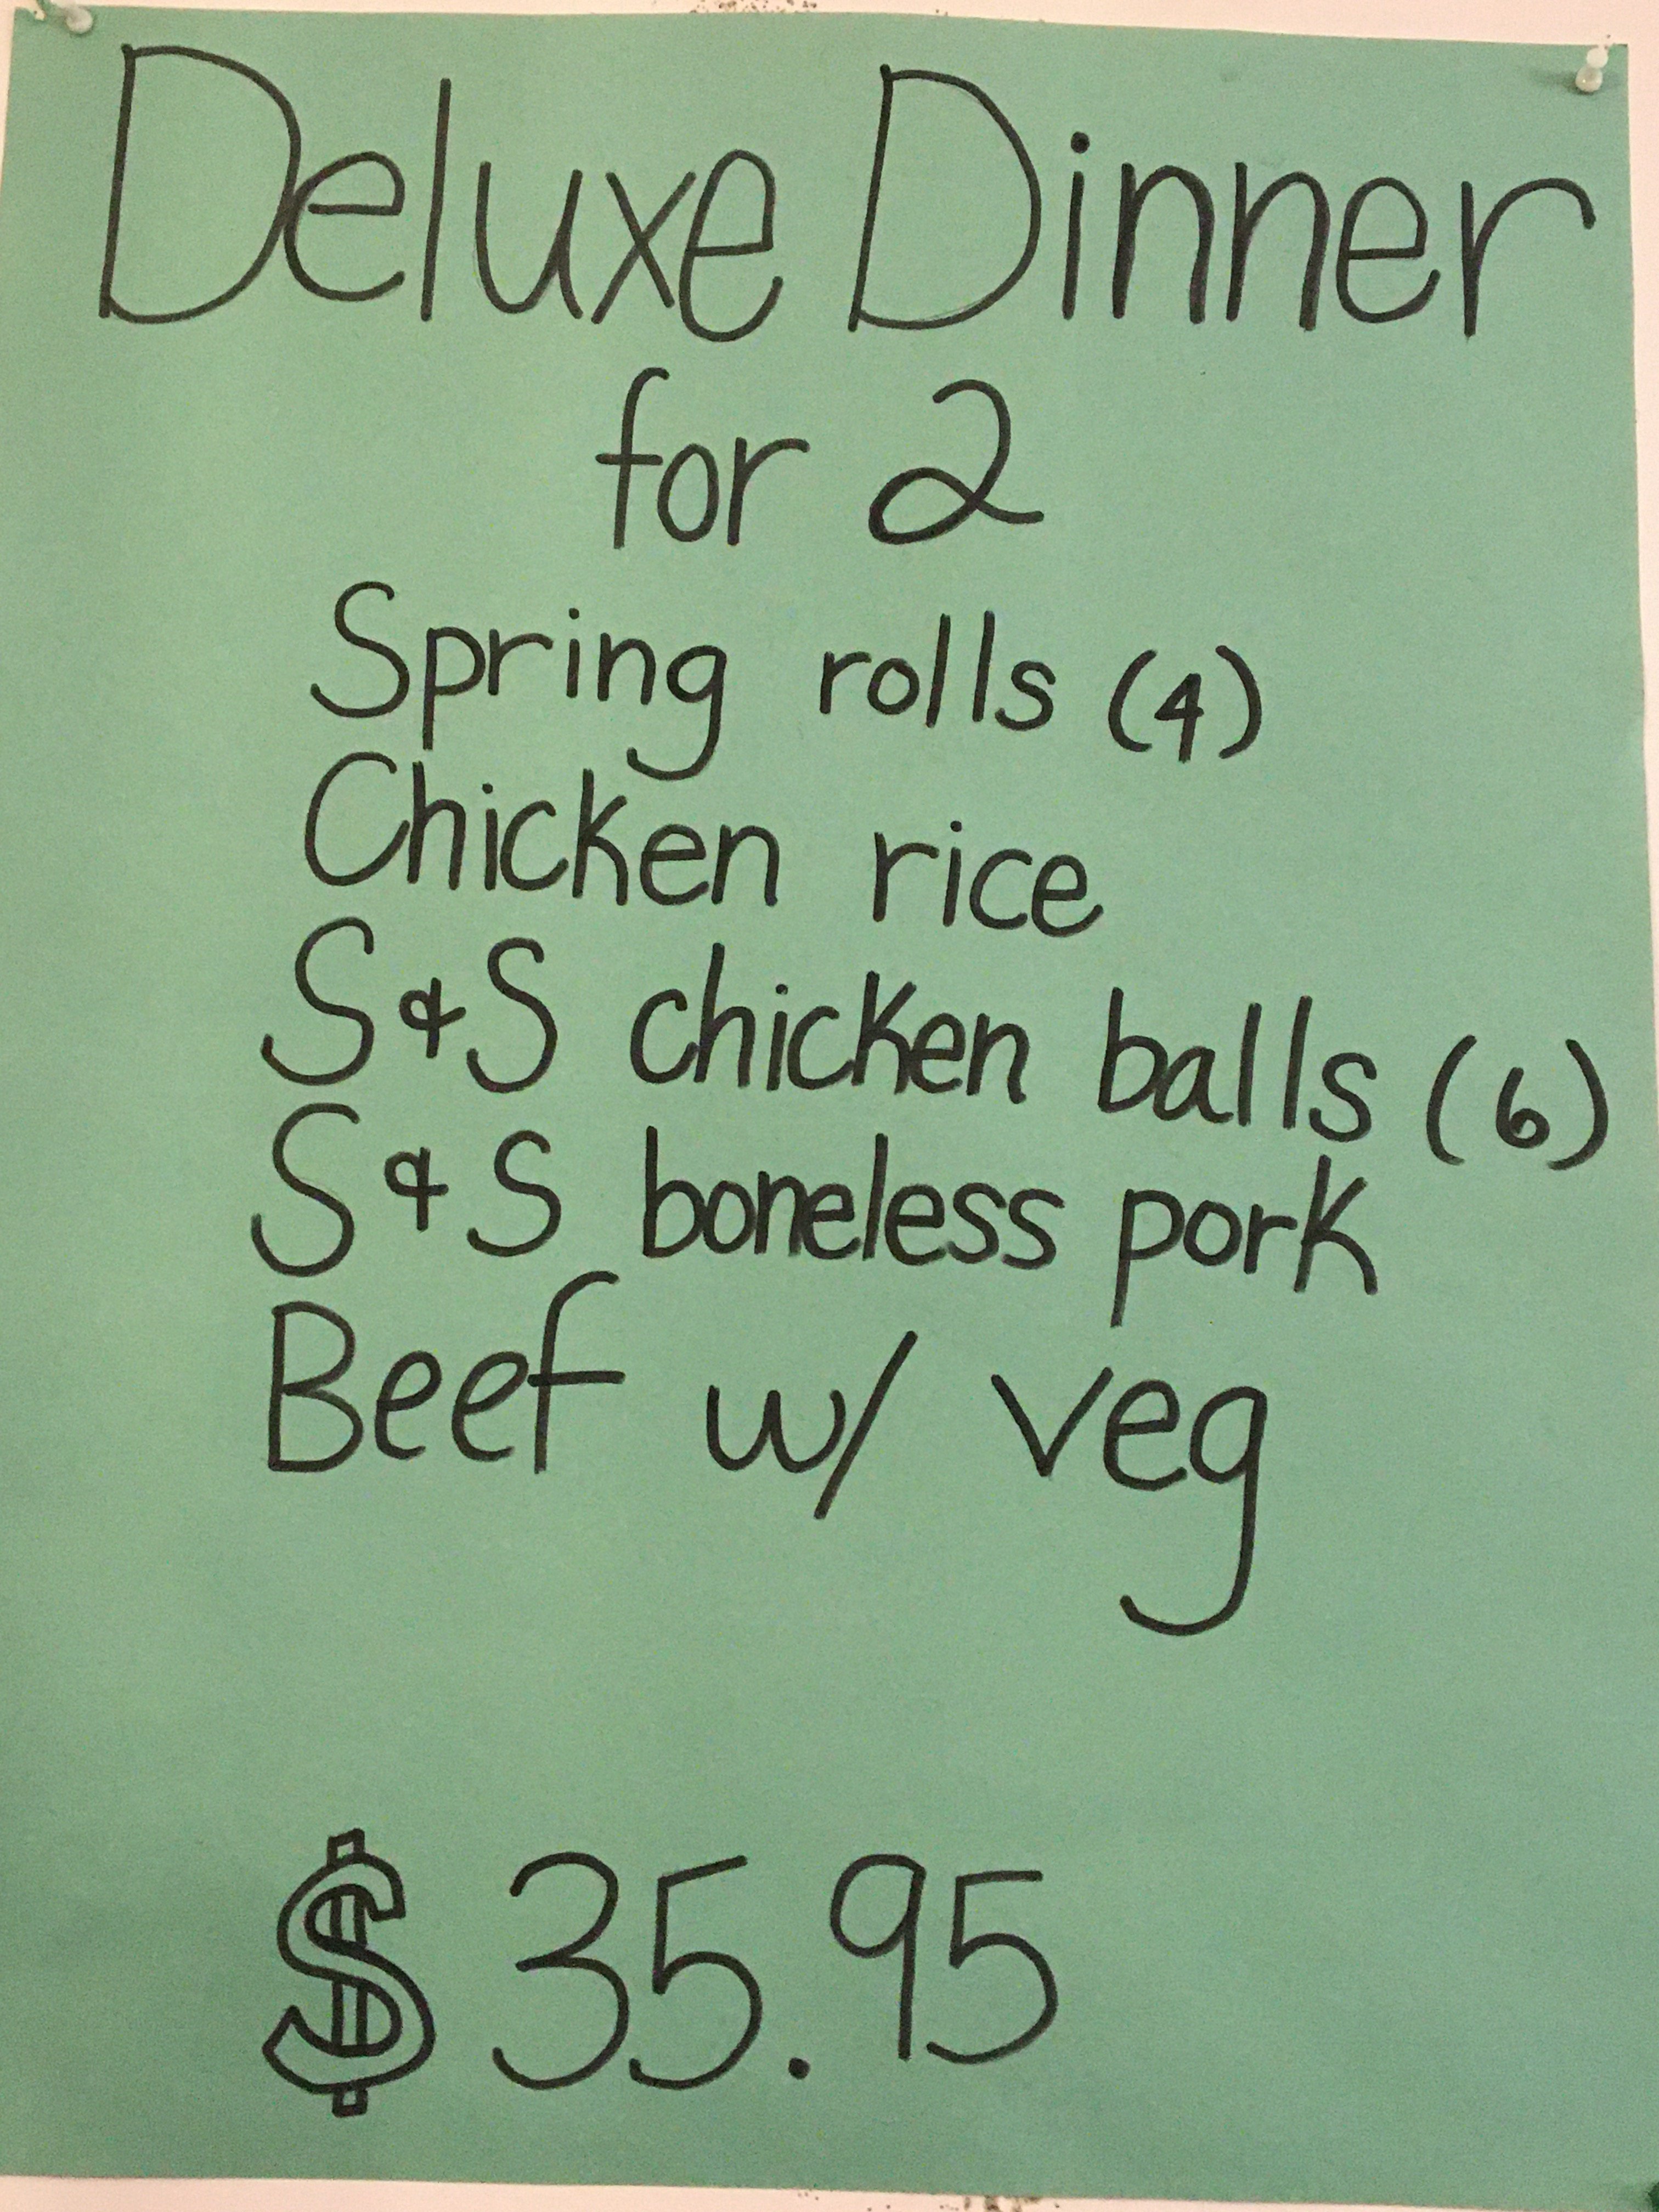 Deluxe Dinner
for 2
Spring rolls (4)
Chicken rice
S & S chicken balls (6)
S & S boneless pork
Beef w/ veg
$35.95